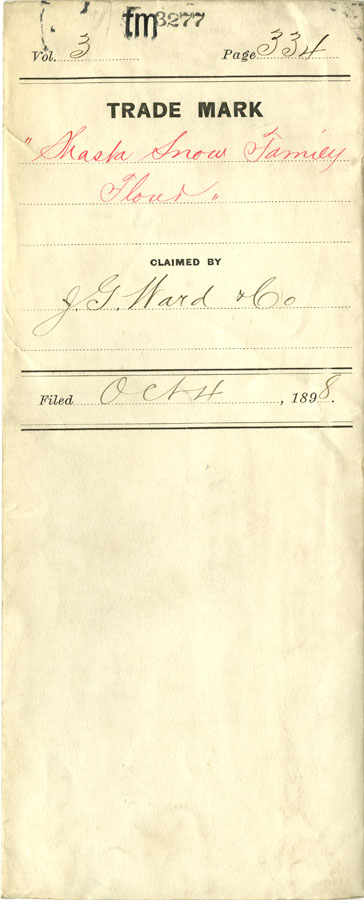 tm 3277
Vol. 3 Page 334
TRADE MARK
"Shasta Snow Family
Flour"
CLAIMED BY
J. G. Ward & Co
Filed Oct 4, 1898.